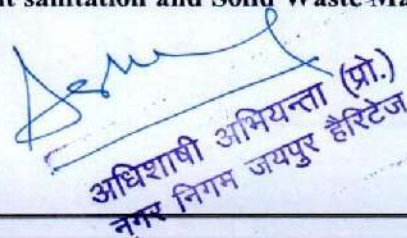 sanitation and Solid Waste Ma
अधिशाषी अभियन्ता (प्रो.)
नगर निगम जयपुर हैरिटेज